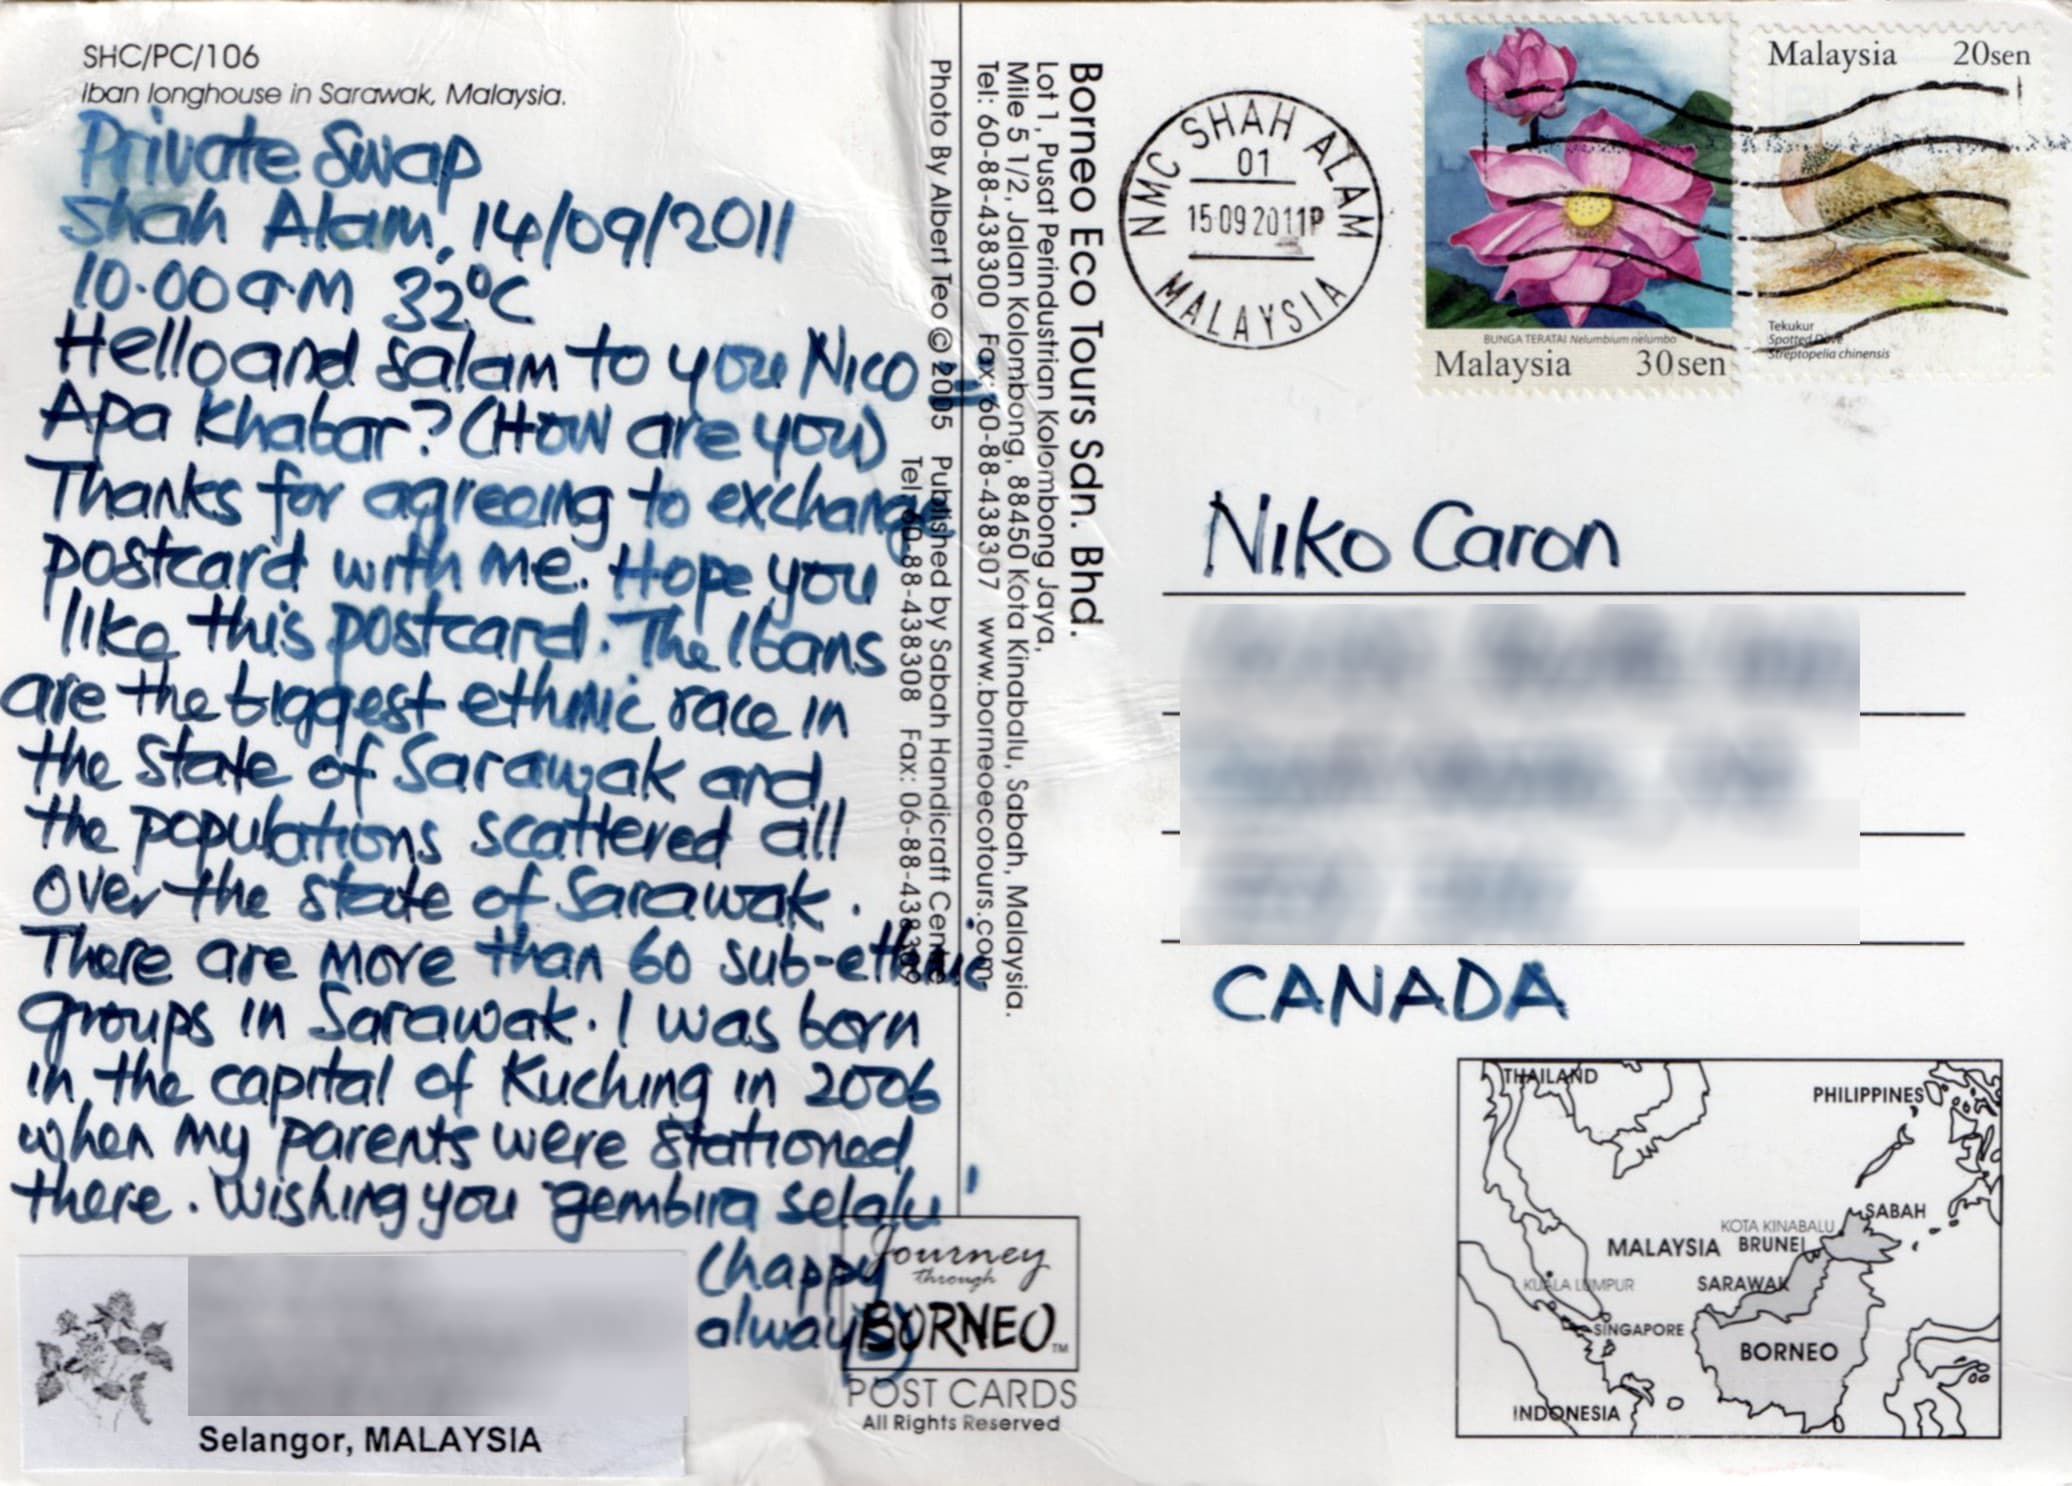 SHC/PC/106
Iban longhouse in Sarawak, Malaysia.
Private Swap
Shah Alam, 14/09/2011
10.00am 32°C
Hello and salam to you Nico
Apa Khabar? (How are you)
Thanks for agreeing to exchange
postcard with me. Hope you
like this postcard. The Ibans
are the biggest ethnic race in
the state of Sarawak and
the populations scattered all
over the state of Sarawak.
There are more than 60 sub-ethnic
groups in Sarawak. I was born
in the capital of Kuching in 2006
when my parents were stationed
there. Wishing you "gembira selalu"
(happy
always)
Selangor, MALAYSIA
Borneo Eco Tours Sdn. Bhd.
Lot 1, Pusat Perindustrian Kolombong Jaya,
Mile 5 1/2, Jalan Kolombong, 88450 Kota Kinabalu, Sabah, Malaysia.
Tel: 60-88-438300 Fax: 60-88-438307 www.borneoecotours.com
Photo By Albert Teo © 2005 Published by Sabah Handicraft Centre
Tel: 60-88-438308 Fax: 06-88-438309
Journey
through
BORNEO TM
POST CARDS
All Rights Reserved
SHAH ALAM
01
15 09 2011P
NMC
MALAYSIA
BUNGA TERATAI Nelumbium nelumbo
Malaysia 30sen
Malaysia 20sen
Tekukur
Spotted Dove
Streptopelia chinensis
Niko Caron
CANADA
THAILAND
PHILIPPINES
SABAH
KOTA KINABALU
MALAYSIA BRUNEI
KUALA LUMPUR SARAWAK
SINGAPORE
BORNEO
INDONESIA